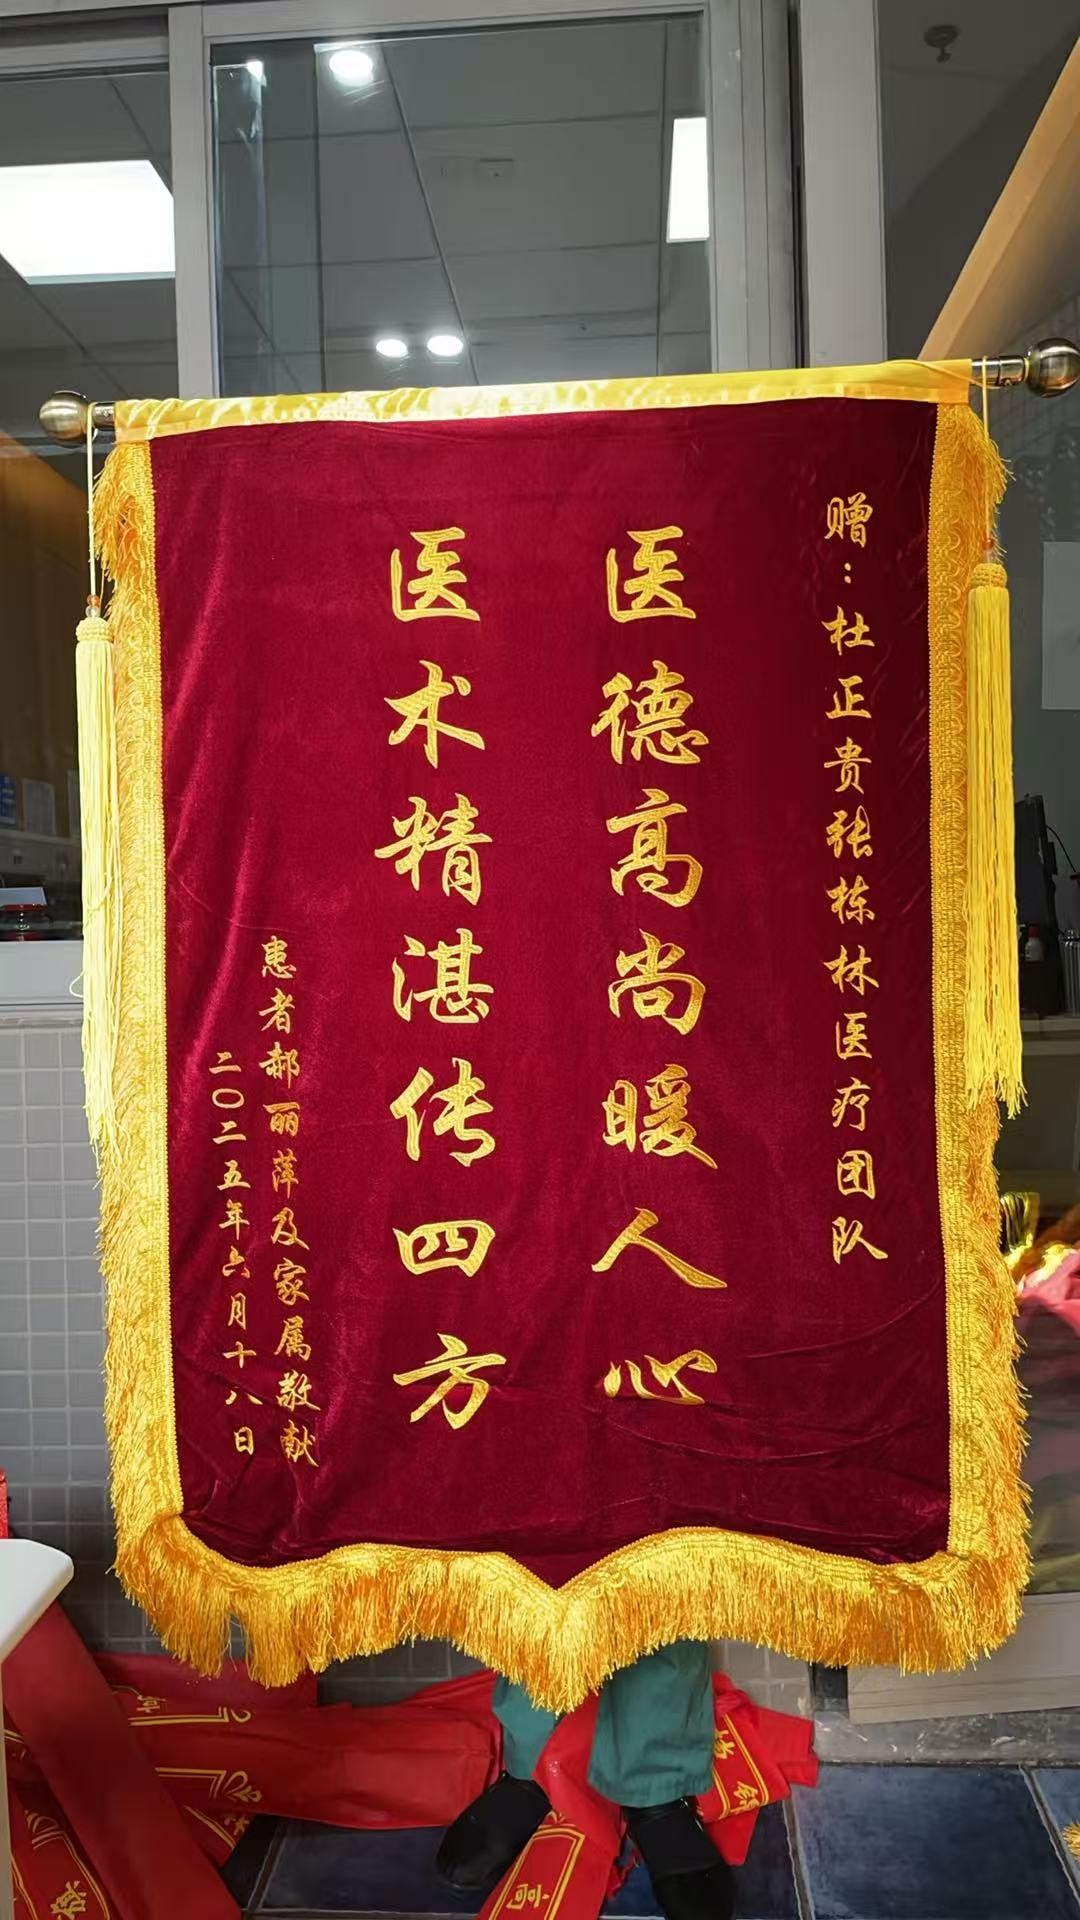 赠：杜正贵张栋林医疗团队
医德高尚暖人心
医术精湛传四方
患者郝丽萍及家属敬献
二〇二五年六月十八日